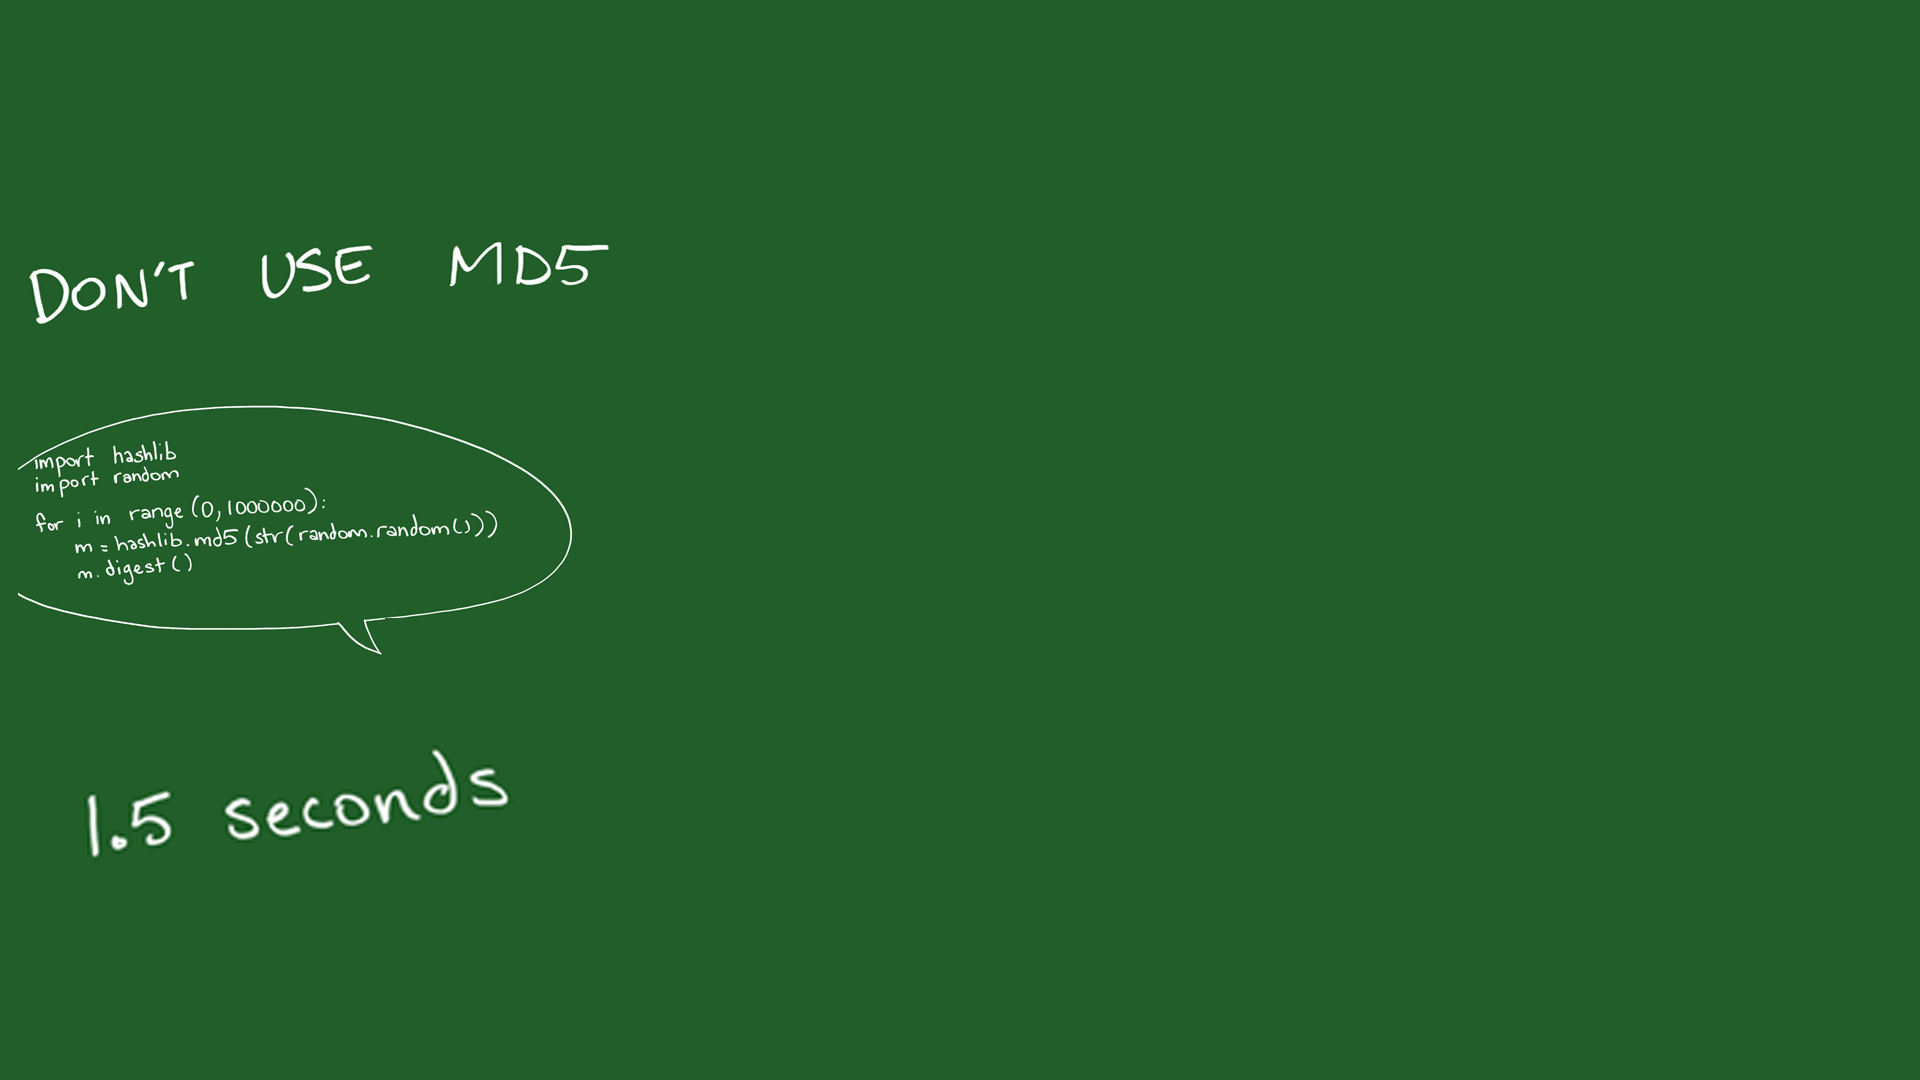 DON'T USE MD5
import hashlib
import random
for i in range (0,1000000):
m = hashlib.md5(str(random.random()))
m.digest()
1.5 seconds